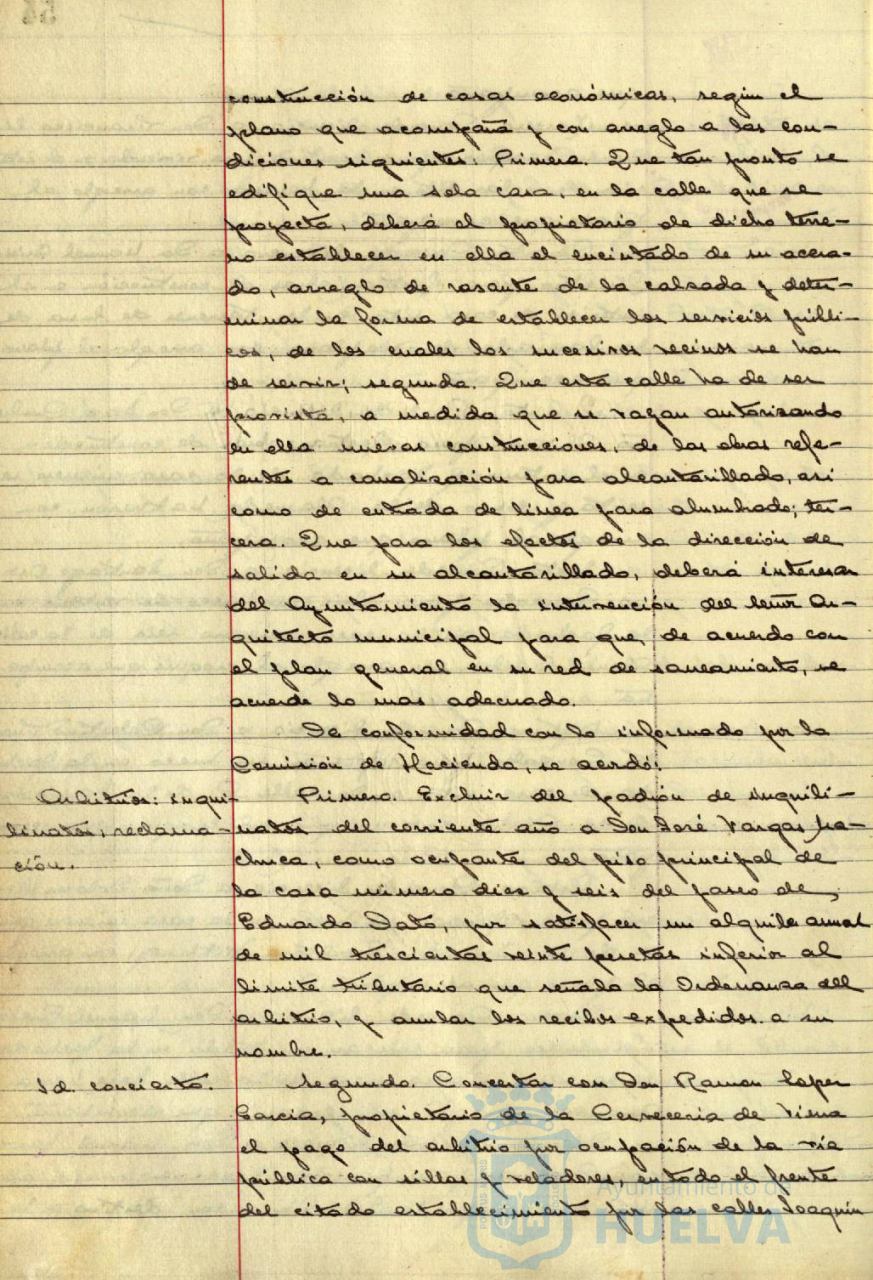 construcción de casas económicas, según el
plano que acompaña y con arreglo a las con-
diciones siguientes: Primera. Que tan pronto se
edifique una sola casa, en la calle que se
proyecta, deberá el propietario de dicho terre-
no establecer en ella el encintado de su acera-
do, arreglo de rasante de la calzada y deter-
minar la forma de establecer los servicios públi-
cos, de los cuales los sucesivos vecinos se han
de servir; segunda. Que esta calle ha de ser
provista, a medida que se vayan autorizando
en ella nuevas construcciones, de las obras refe-
rentes a canalización para alcantarillado, así
como de entrada de línea para alumbrado; ter-
cera. Que para los efectos de la dirección de
salida en su alcantarillado, deberá interesar
del Ayuntamiento la intervención del señor Ar-
quitecto municipal para que, de acuerdo con
el plan general en su red de saneamiento, se
acuerde lo mas adecuado.
De conformidad con lo informado por la
Comisión de Hacienda, se acordó:
Arbitrios: inqui-
linatos, reclama-
ción.
Primero. Excluir del padrón de inquili-
natos del corriente año a Don José Vargas Ma-
chuca, como ocupante del piso principal de
la casa número diez y seis del paseo de
Eduardo Dato, por satisfacer un alquiler anual
de mil trescientas veinte pesetas inferior al
limite tributario que señala la Ordenanza del
arbitrio, y anular los recibos expedidos a su
nombre.
Id. concierto.
Segundo. Concertar con Don Ramon Lopez
Garcia, propietario de la Cerveceria de Viena
el pago del arbitrio por ocupación de la vía
pública con sillas y veladores, en todo el frente
del citado establecimiento por las calles Joaquín
Ayuntamiento de
HUELVA